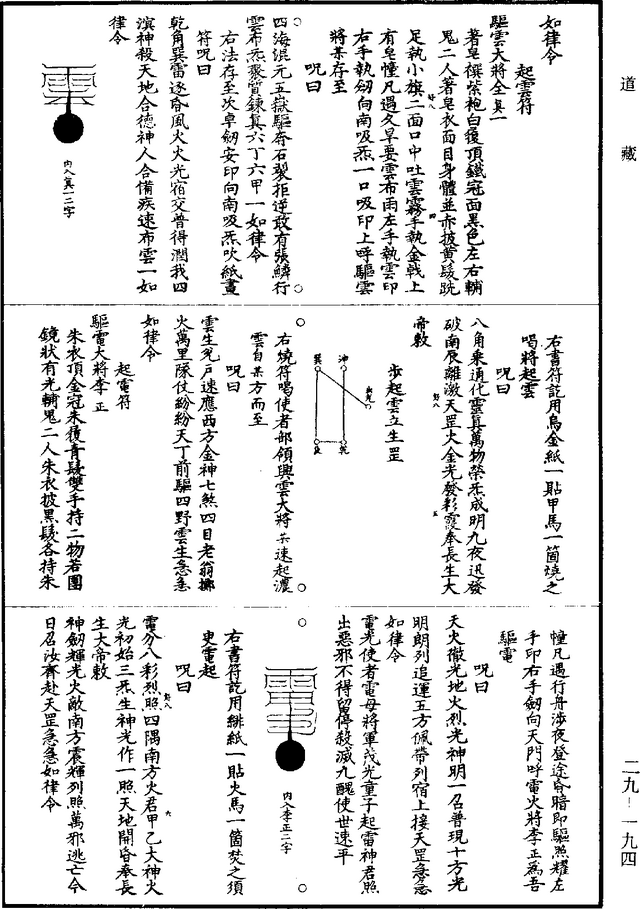 道藏
如律令
起雲符
驅雲大將全真一
著皂襈紫袍白履頂鐵冠面黑色左右輔
鬼二人著皂衣面目身體並赤披黃髮跣
足執小旗二面口中吐雲霧手執金戟上
有皂幢凡遇久旱要雲布雨左手執雲印
右手執劒向南吸炁一口吸印上呼驅雲
將某存至
呪曰
四海混元五嶽驅奔石裂拒逆敢有張鱗行
雲布炁聚質鍊真六丁六甲一如律令
右法存至次卓劒安印向南吸炁吹紙畫
符呪曰
乾角巽雷逐奋風火火光宿交普得潤我四
濱神殺天地合德神人合備疾速布雲一如
律令
內入真一二字
右書符訖用烏金紙一貼甲馬一箇燒之
喝將起雲
呪曰
八角乘通化靈真萬物榮炁成明九夜迅發
破南辰離激天罡火金光發彩霞奉長生大
帝敕
步起雲立生罡
巽
艮
沖
乾
右燒符喝使者部領興雲大將某速起濃
雲自某方而至
呪曰
雲生兌戶速應西方金神七煞四目老翁擲
火萬里隊仗紛紛天丁前驅四野雲生急急
如律令
起電符
驅電大將李正
朱衣頂金冠朱履青髮雙手持二物若團
鏡狀有光輔鬼二人朱衣披黑髮各持朱
幢凡遇行舟涉夜登途奋暗即驅照耀左
手印右手劒向天門呼電火將李正為吾
驅電
呪曰
天火徹光地火烈光神明一召普現十方光
明朗列追運五方佩帶列宿上接天罡急急
如律令
電光使者電母將軍茂光童子起雷神君照
出惡邪不得留停殺滅九醜使世速平
內入李正二字
右書符訖用緋紙一貼火馬一箇焚之須
臾電起
呪曰
電分八彩烈照四隅南方火君甲乙大神火
光初始三炁生神光作一照天地開昏奉長
生大帝敕
神劒輝光火敵南方震輝列照萬邪逃亡今
日召汝齊赴天罡急急如律令
二九—一九四